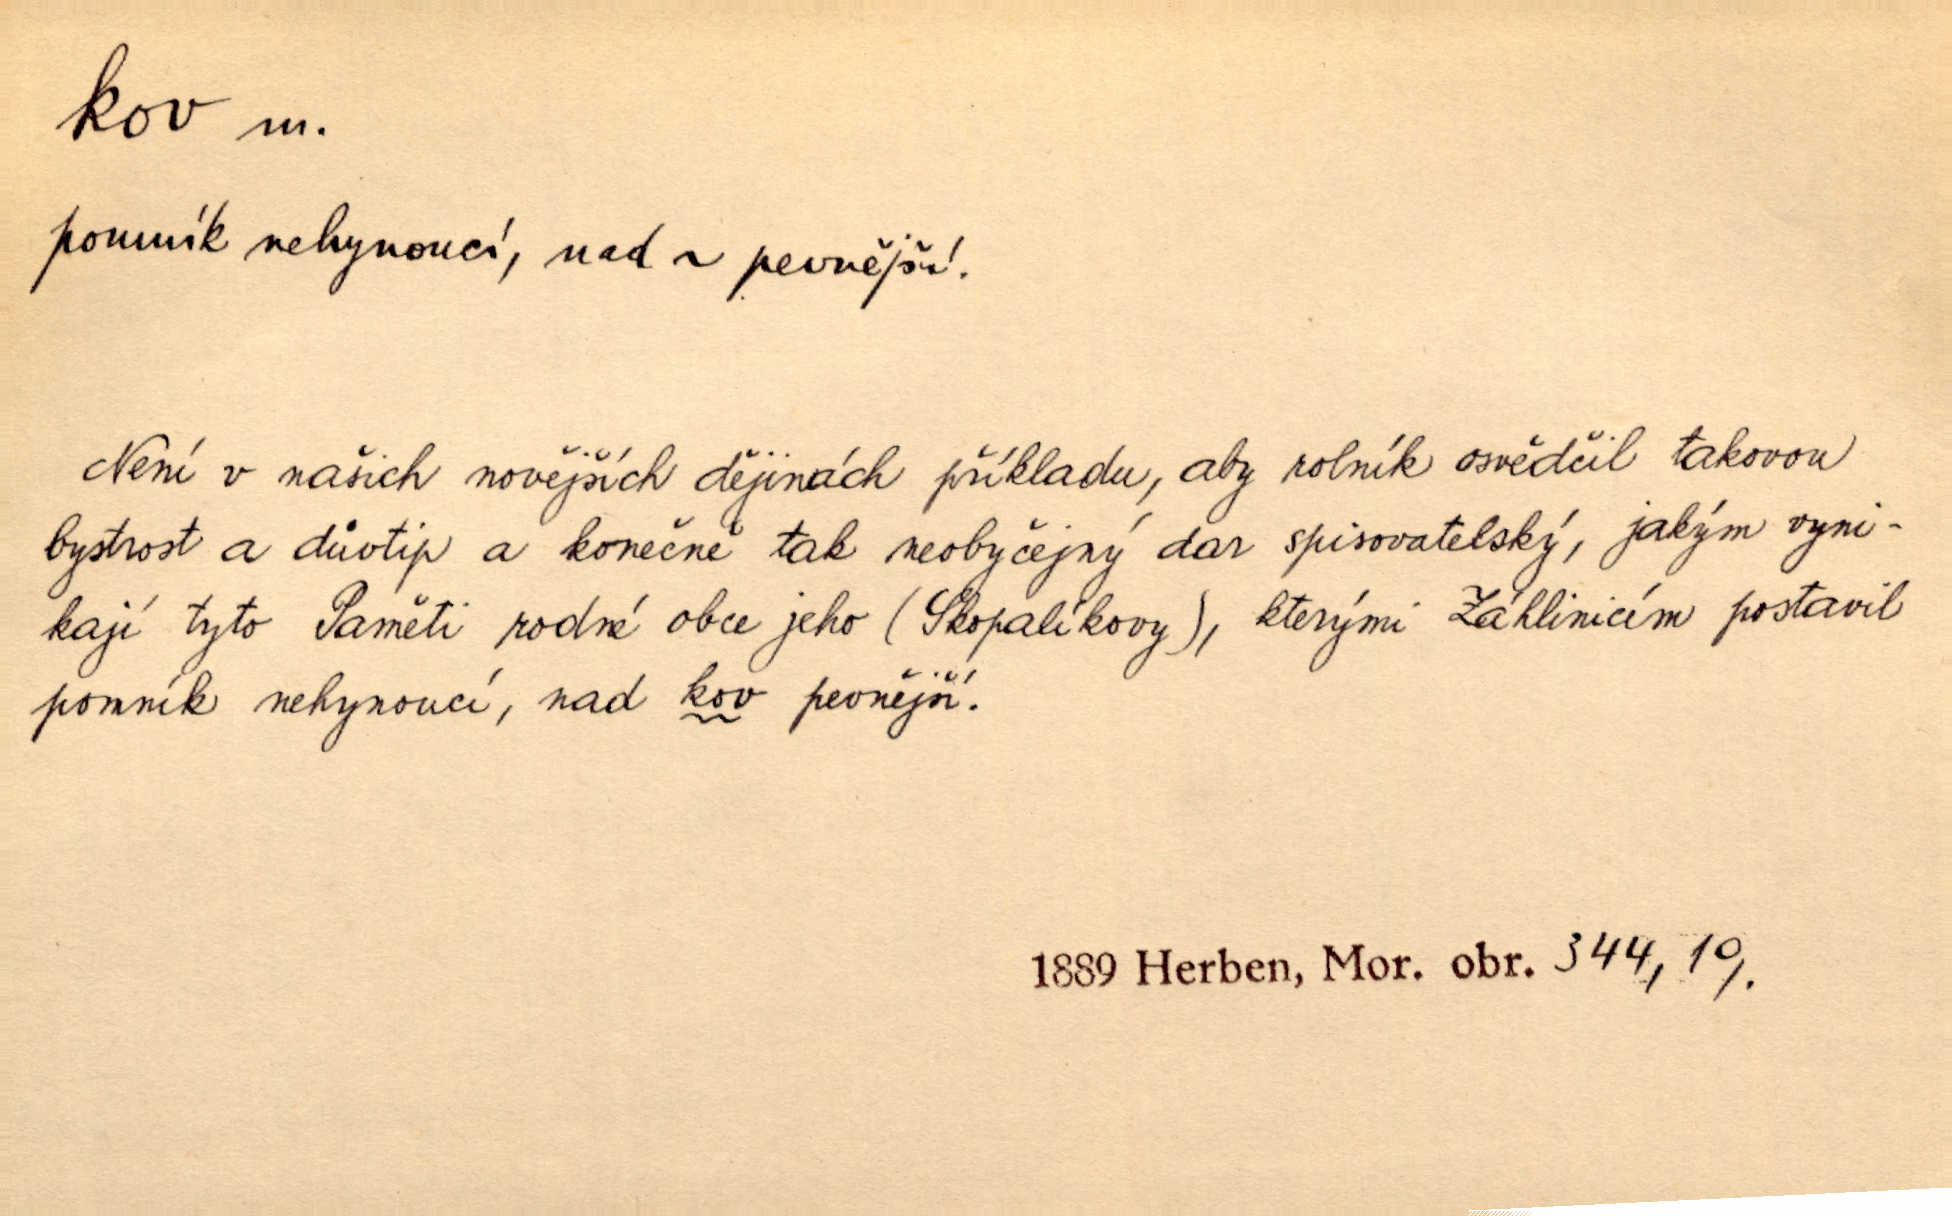 kov m.
pomník nehynoucí, nad ~ pevnější.
Není v našich novějších dějinách příkladu, aby rolník osvědčil takovou
bystrost a důvtip a konečně tak neobyčejný dar spisovatelský, jakým vyni-
kají tyto Paměti rodné obce jeho (Skopalíkovy), kterými Záhlinicím postavil
pomník nehynoucí, nad kov pevnější.
1889 Herben, Mor. obr. 344, 10/.